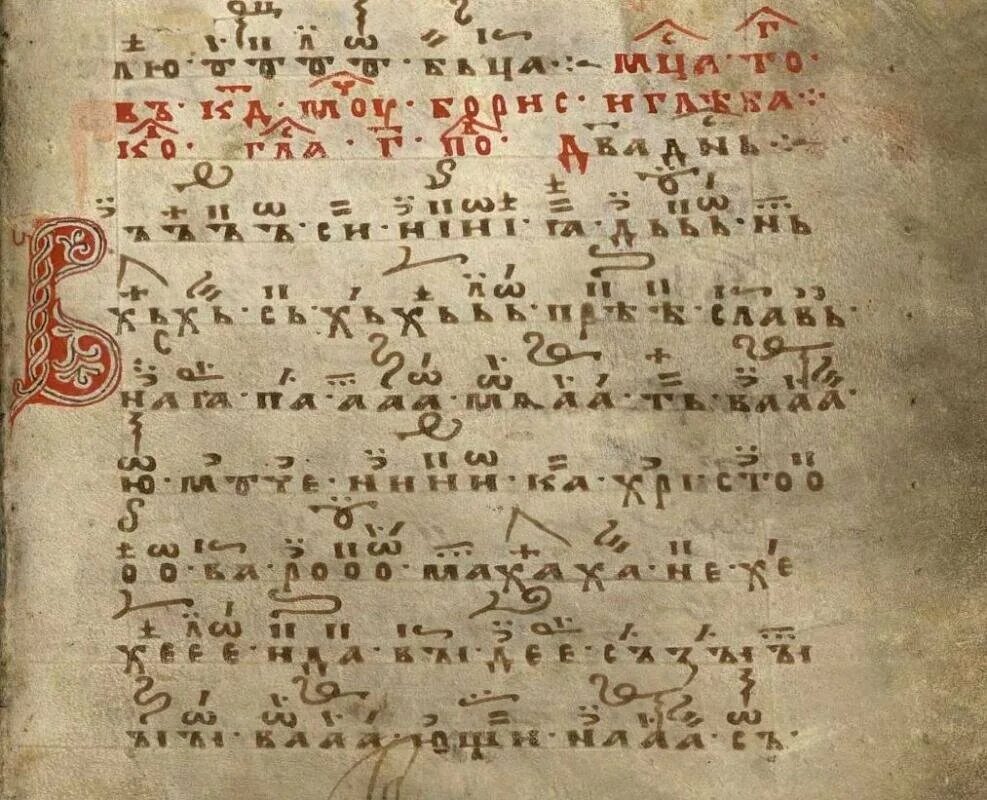 лю·ꙋꙋꙋꙋ·бьца·:~ мцⷭ҇а·тоⷢ҇·
въ·к҃д·моуⷱ҇·борис·и глѣба·:·
коⷣ·глаⷭ҇·г҃·поⷣ· два дн҃ь·:~
Въъъъ·си·нıнı·ꙗ·дььь·нь
хьхь·сь·хьхььь·прѣѣ·славь·
наꙗ·па·ааа·мѧаа·ть·вааа·
ю·мꙋче·нини·ка·христоо
оо·ва·рооо·махаха·не·хе
хеее·нда·вꙑ·дее·съзꙑꙑ
ꙑꙑ·вааа·ющи·нааа·съ·